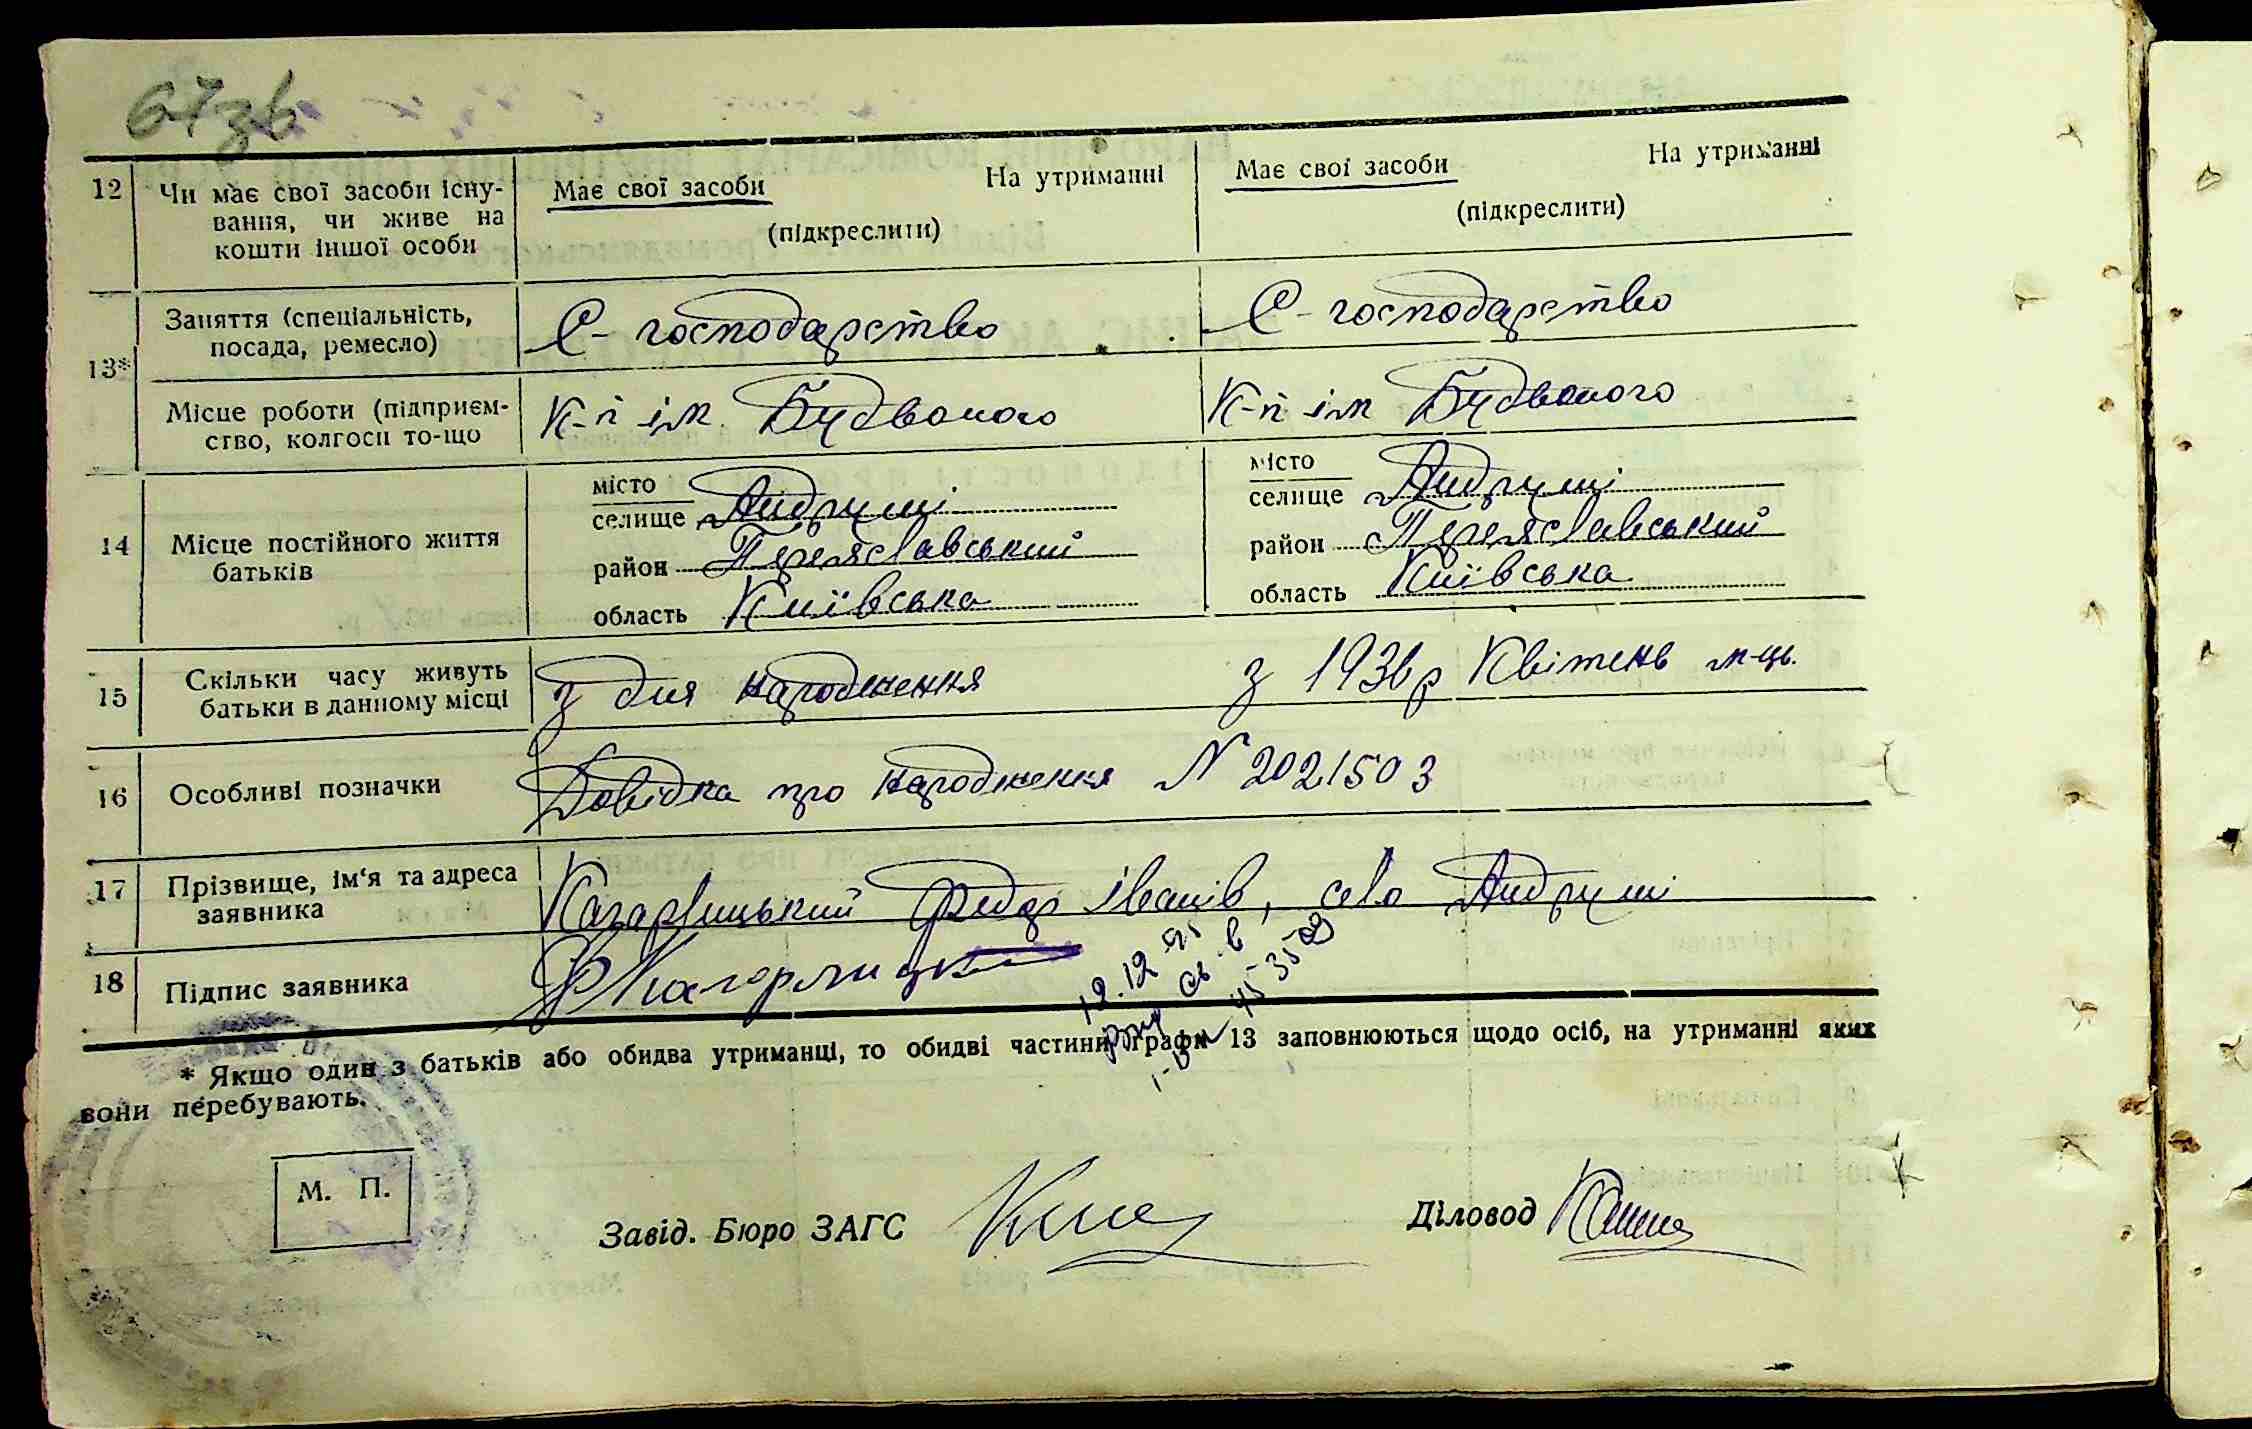 67зв
12 Чи має свої засоби існу- Має свої засоби На утриманні Має свої засоби На утриманні
вання, чи живе на (підкреслити) (підкреслити)
кошти іншої особи
13* Заняття (спеціальність, С-господарство С-господарство
посада, ремесло)
Місце роботи (підприєм- К-п ім. Будьоного К-п ім Будьоного
ство, колгосп то-що
14 Місце постійного життя батьків
місто
селище Андруші
район Переяславський
область Київська
місто
селище Андруші
район Переяславський
область Київська
15 Скільки часу живуть з дня народження з 1936 р Квітень м-ць.
батьки в данному місці
16 Особливі позначки Довідка про народження N 2021503
17 Прізвище, ім'я та адреса Кагарлицький Федор Іванів, село Андруші
заявника
18 Підпис заявника ФКагарлицький
12.12
* Якщо один з батьків або обидва утриманці, то обидві частини графи 13 заповнюються щодо осіб, на утриманні яких
вони перебувають.
М. П.
Завід. Бюро ЗАГС
Діловод